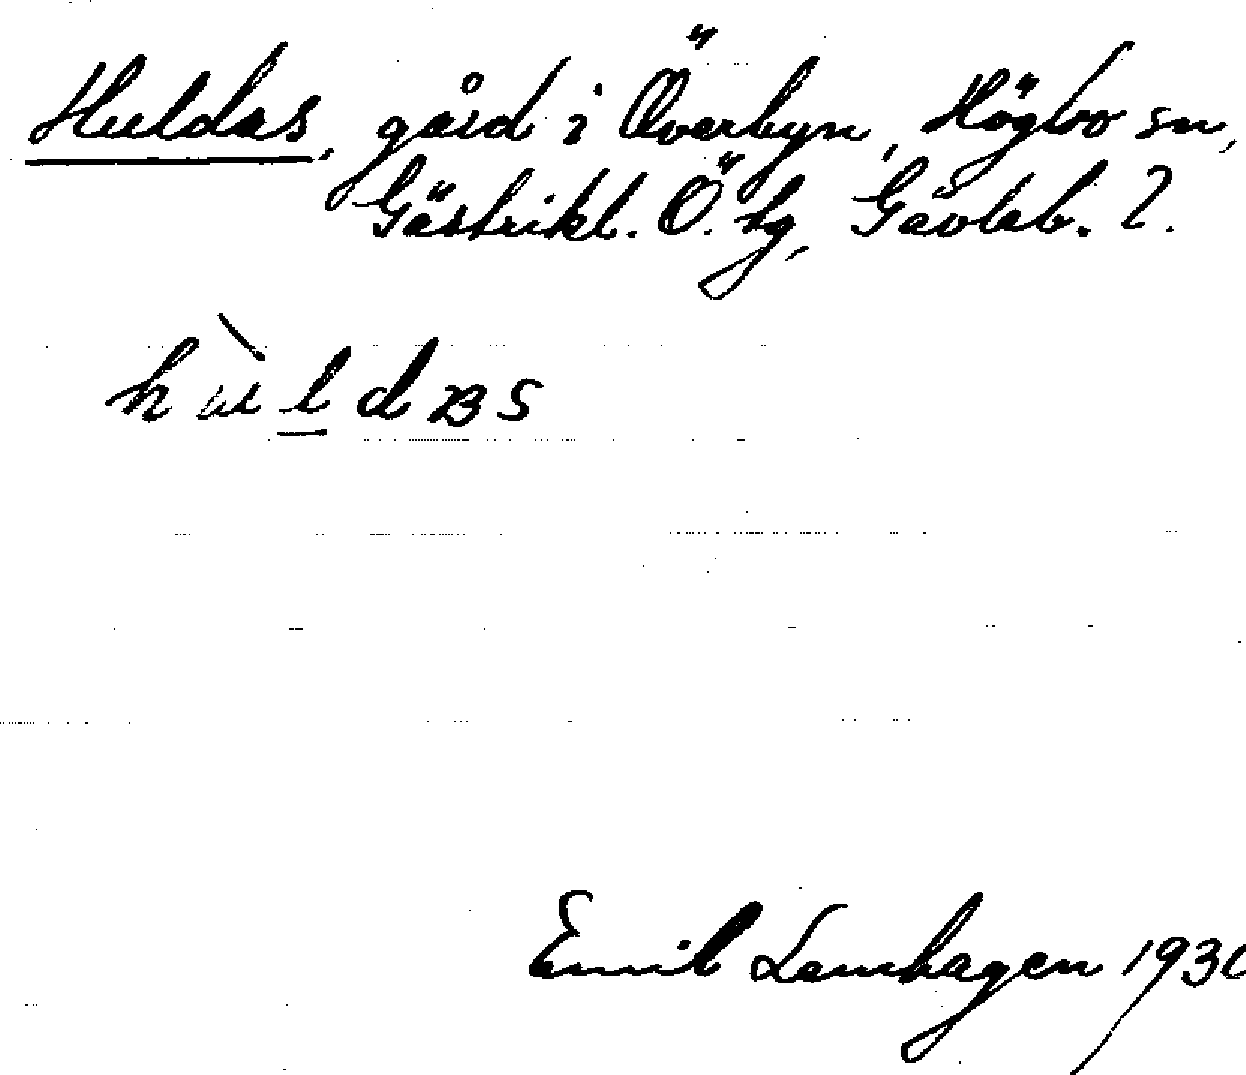 Huldas, gård i Överbyn, Högbo sn,
Gästrikl. Ö. tg, Gävleb. l.
hùldɐs
Emil Lamhagen 193